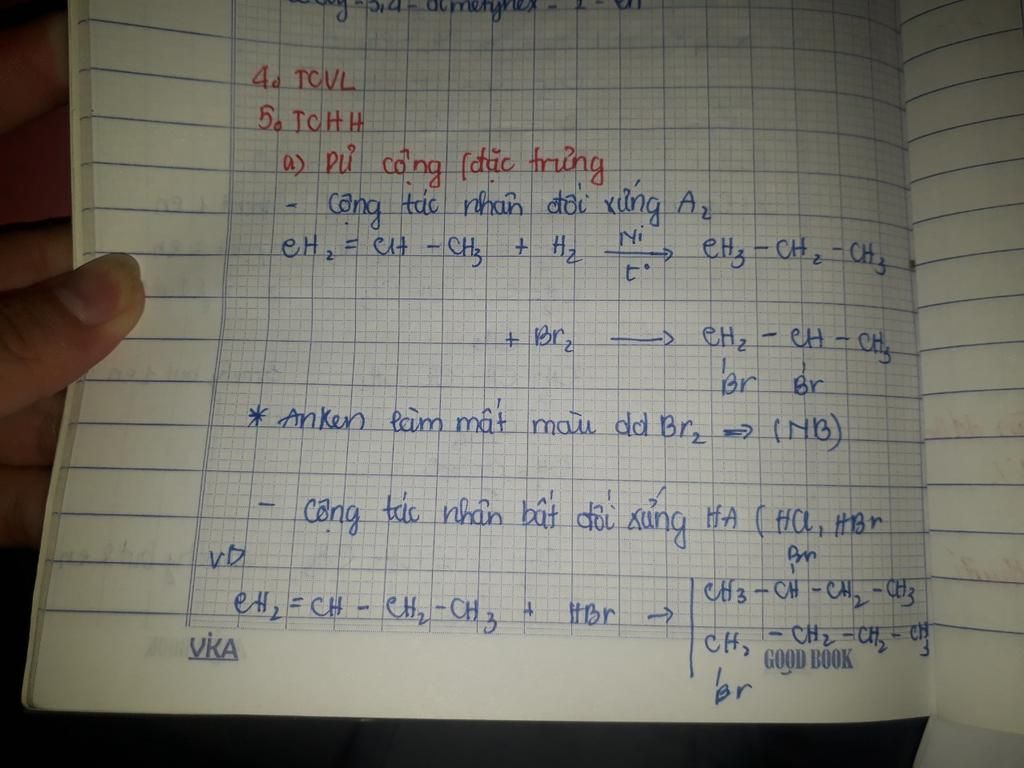 - 3,4 - dimetylhex - 1 - en
4. TCVL
5. TCHH
a) PƯ cộng (đặc trưng
- Cộng tác nhân đối xứng A₂
CH₂ = CH - CH₃ + H₂ Ni t° → CH₃ - CH₂ - CH₃
+ Br₂ → CH₂ - CH - CH₃
Br Br
* Anken làm mất màu dd Br₂ => (NB)
- Cộng tác nhân bất đối xứng HA (HCl, HBr
VD
Br
CH₂ = CH - CH₂ - CH₃ + HBr → CH₃ - CH - CH₂ - CH₃
CH₂ - CH₂ - CH₂ - CH₃
Br
VIKA
GOOD BOOK